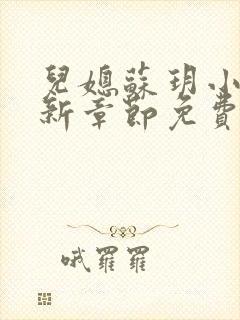 兒媳蘇玥小
新章節免費
哦羅羅